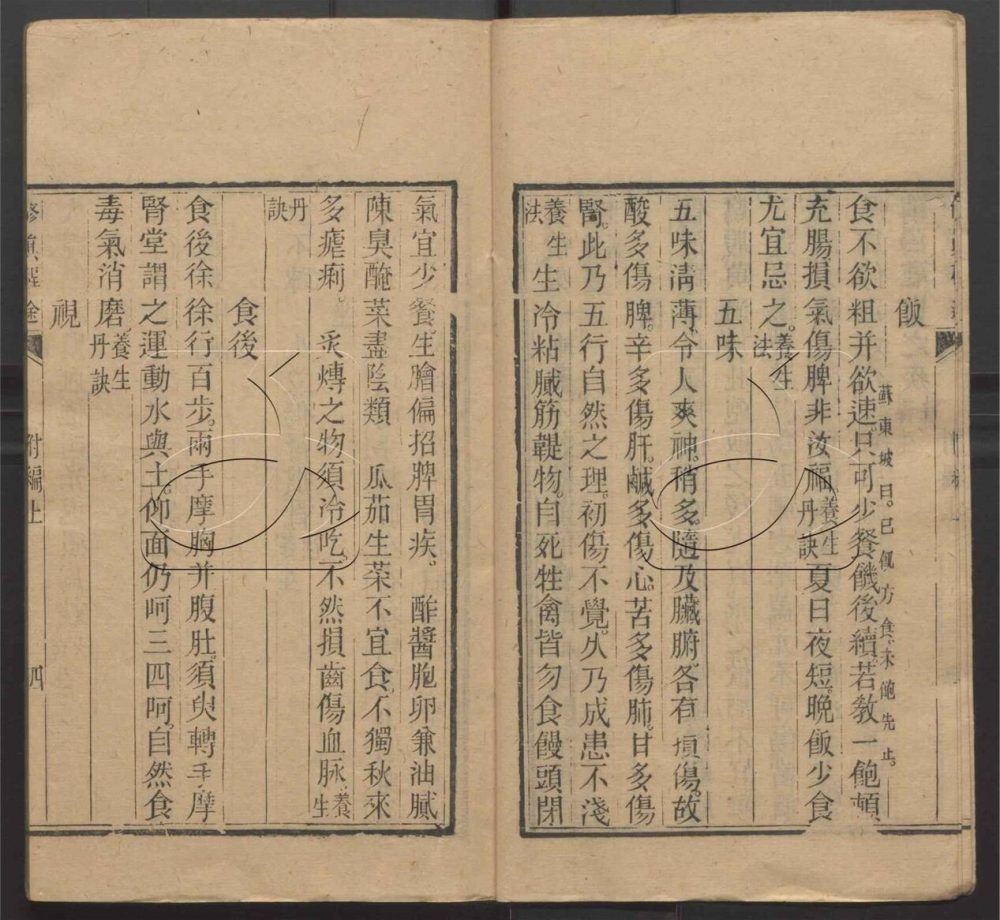 飯
蘇東坡曰。已飢方食。未飽先止。
食不欲粗并欲速。只可少餐饑後續。若教一飽頓
充腸損氣傷脾非汝福養生丹訣夏日夜短。晚飯少食
尤宜忌之。養生法
五味
五味清薄。令人爽神。稍多。隨及臟腑。各有損傷。故
酸多傷脾。辛多傷肝。鹹多傷心。苦多傷肺。甘多傷
腎。此乃五行自然之理。初傷不覺。久乃成患不淺
養生法 生冷粘膩筋韃物。自死牲禽皆勿食饅頭閉
氣宜少餐生膾偏招脾胃疾。 酢醬胞卵兼油膩
陳臭醃菜盡陰類 瓜茄生菜不宜食。不獨秋來
多瘧痢。 炙煿之物須冷吃。不然損齒傷血脉養生
丹訣
食後
食後徐徐行百步。兩手摩胸并腹肚。須臾轉手摩
腎堂謂之運動水與土。仰面仍呵三四呵。自然食
毒氣消磨。養生丹訣
視
修真程途
附編上
四